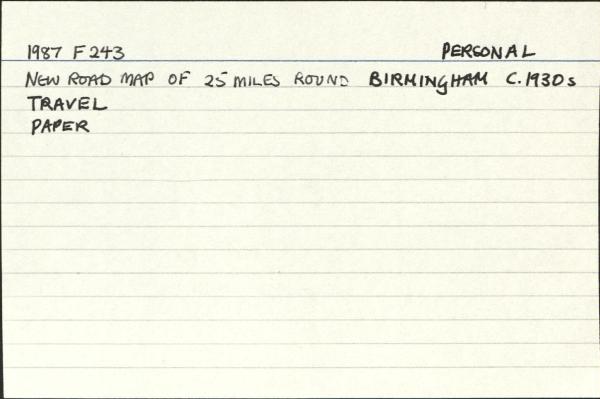 1987 F 243 PERSONAL
NEW ROAD MAP OF 25 MILES ROUND BIRMINGHAM C.1930s
TRAVEL
PAPER